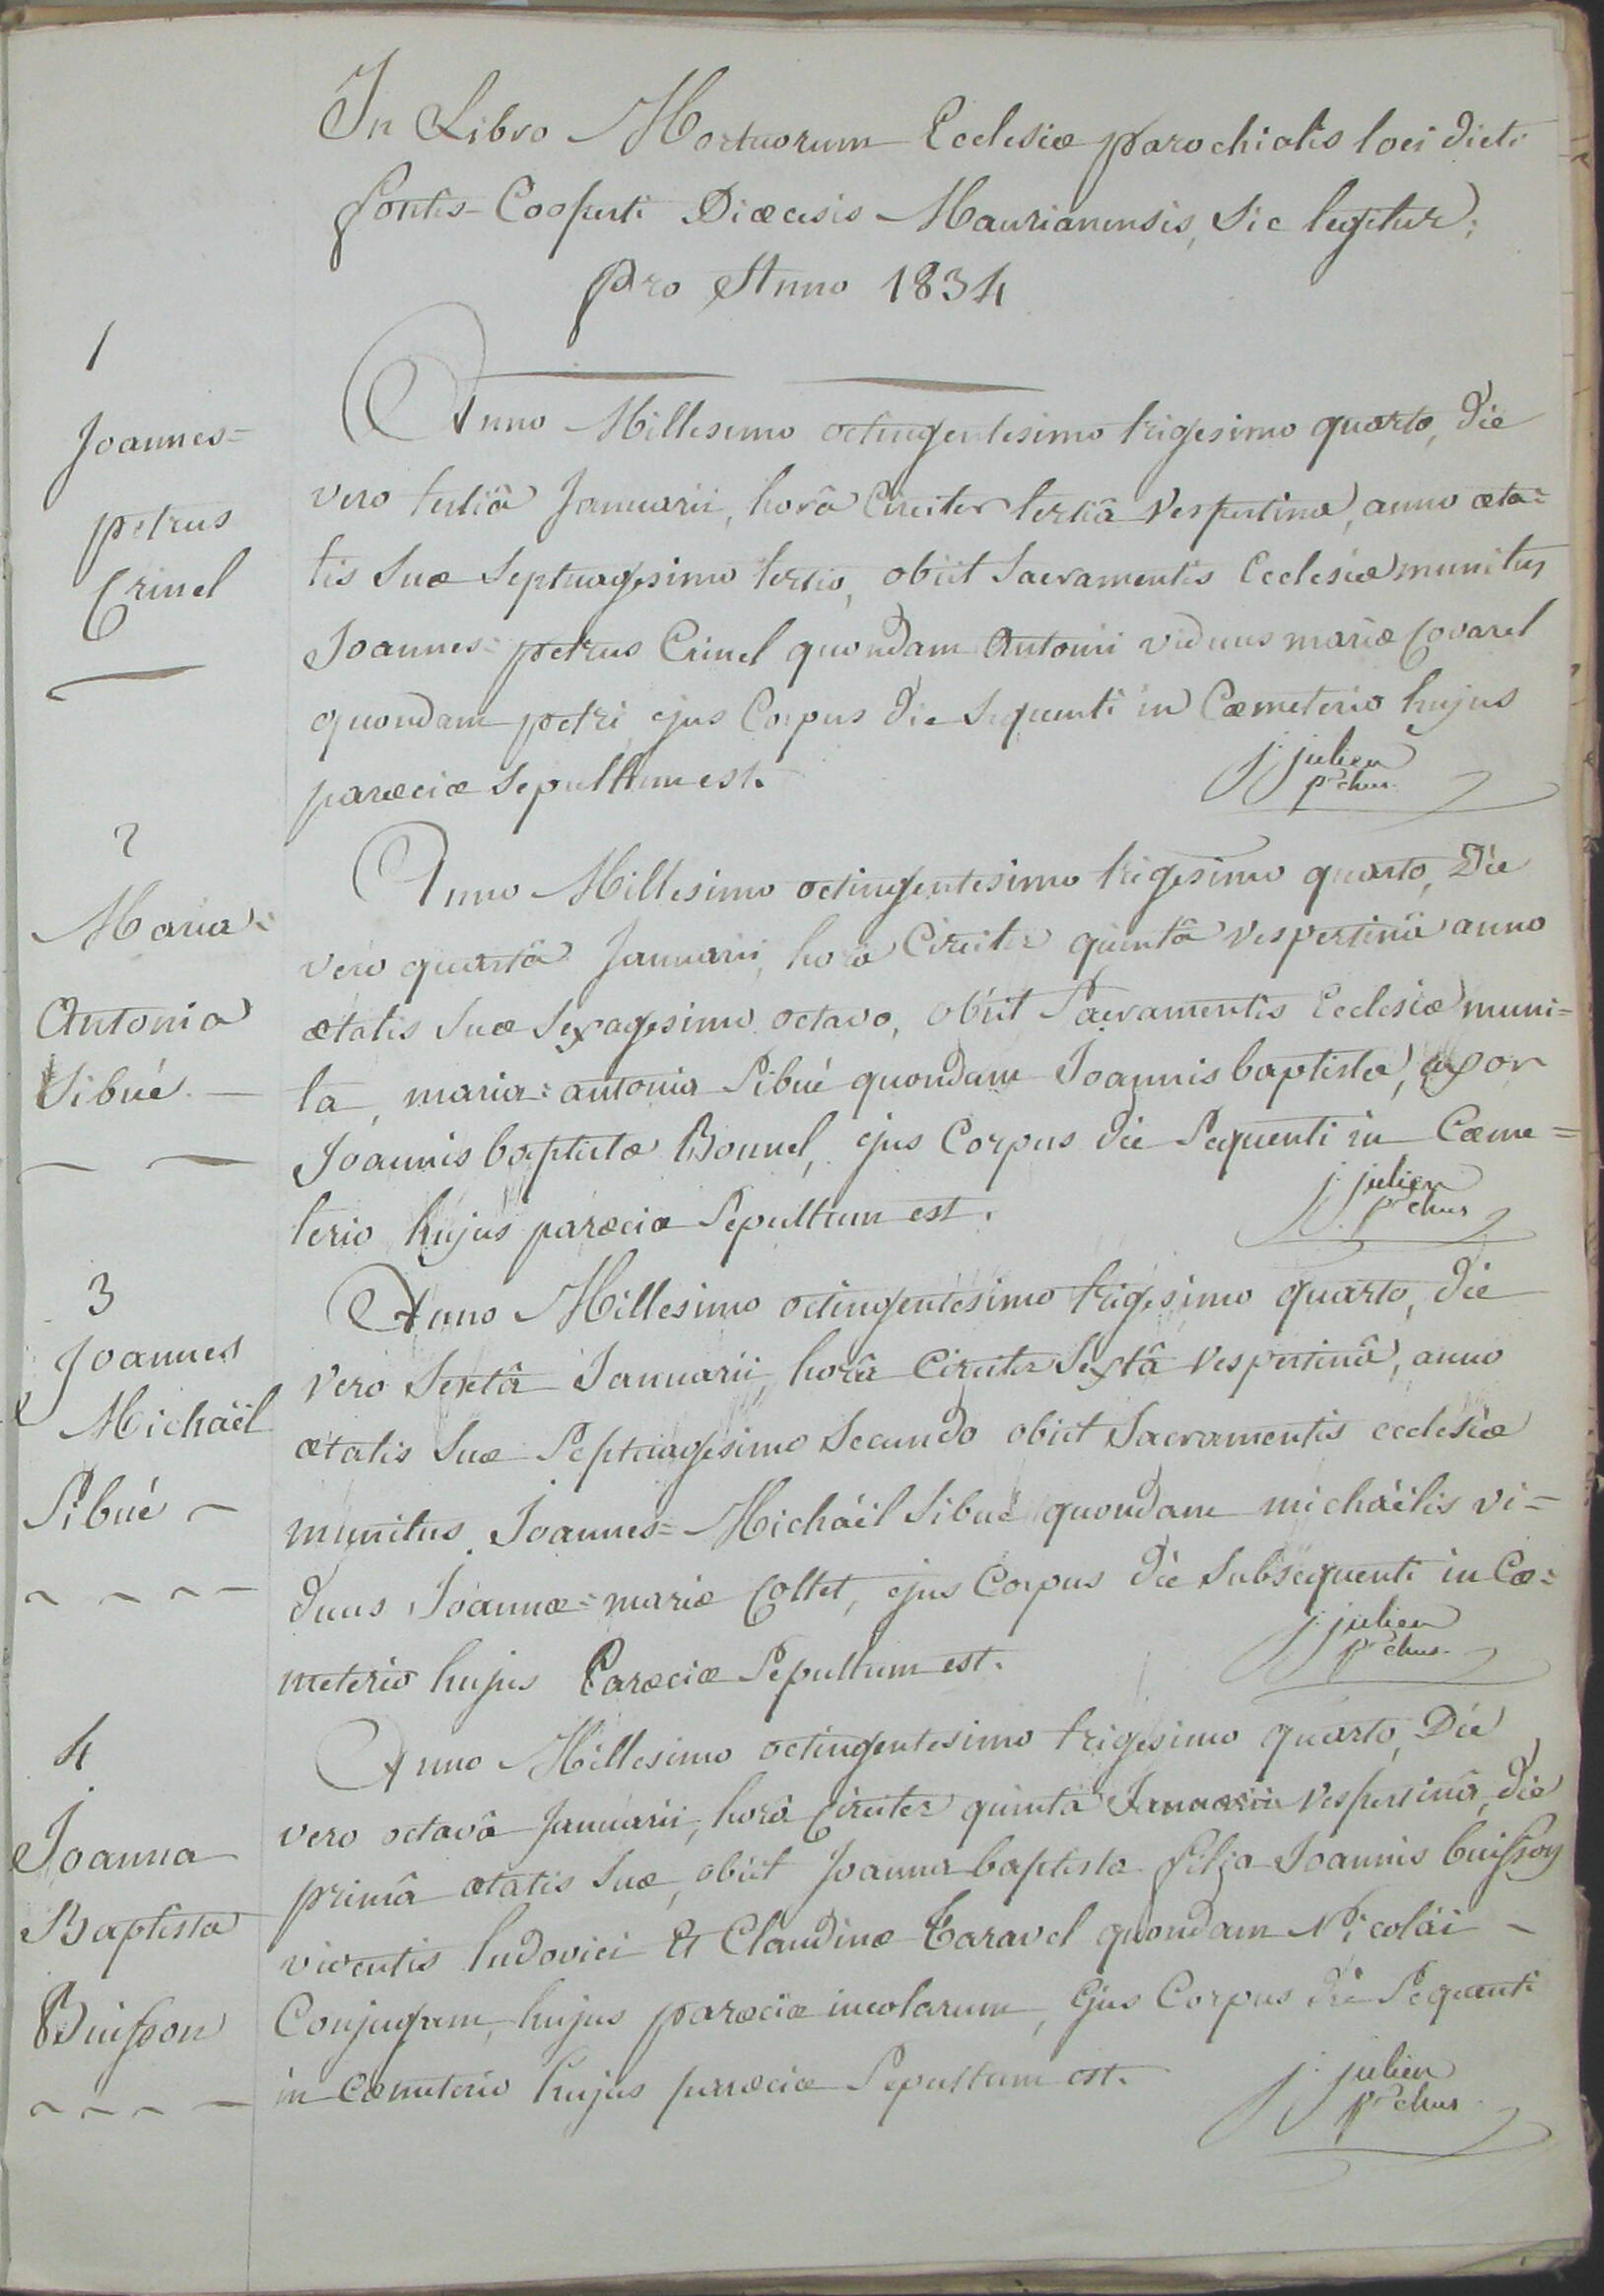 In Libro Mortuorum Ecclesiæ parochialis loci dicti
fontis-Cooperti Diœcesis Maurianensis, Sic legitur;
Pro Anno 1834
1
Joannes=
petrus
Crinel
Anno Millesimo octingentesimo trigesimo quarto, die
vero tertiâ Januarii, horâ Circiter tertiâ Vespertina, anno æta=
tis Suæ Septuagesimo tertio, obiit Sacramentis Ecclesiæ munitus
Joannes=petrus Crinel quondam Antonii viduus mariæ Covarel
quondam petri ejus Corpus die Sequenti in Cœmeterio hujus
parœciæ Sepultum est.
j. julien
pr chus.
2
Maria=
Antonia
Sibué.
Anno Millesimo octingentesimo trigesimo quarto, Die
vero quartâ Januarii, horâ Circiter quintâ Vespertinâ anno
ætatis Suæ Sexagesimo octavo, obiit Sacramentis Ecclesiæ muni=
ta, maria=antonia Sibué quondam Joannis baptistæ, uxor
Joannis baptistæ Bonnel, ejus Corpus die Sequenti in Cœme=
terio hujus parœciæ Sepultum est.
j. julien
pr chus
3
Joannes
Michaël
Sibué
Anno Millesimo octingentesimo trigesimo quarto, die
vero Sextâ Januarii, horâ Circiter Sextâ Vespertinâ, anno
ætatis Suæ Septuagesimo Secundo obiit Sacramentis ecclesiæ
munitus Joannes=Michaël Sibué quondam michaëlis vi=
duus Joannæ=mariæ Collet, ejus Corpus die Subsequenti in Cœ=
meterio hujus Parœciæ Sepultum est.
j. julien
pr chus.
4
Joanna
Baptista
Buisson
Anno Millesimo octingentesimo trigesimo quarto, Die
vero octavâ Januarii, horâ Circiter quintâ Januarii Vespertinâ, die
primâ ætatis Suæ, obiit Joanna baptista filia Joannis buisson
viventis ludovici Et Claudinæ Taravel quondam Nicolâi
Conjugum, hujus parœciæ incolarum, Ejus Corpus die Sequenti
in Cœmeterio hujus parœciæ Sepultum est.
j. julien
pr chus